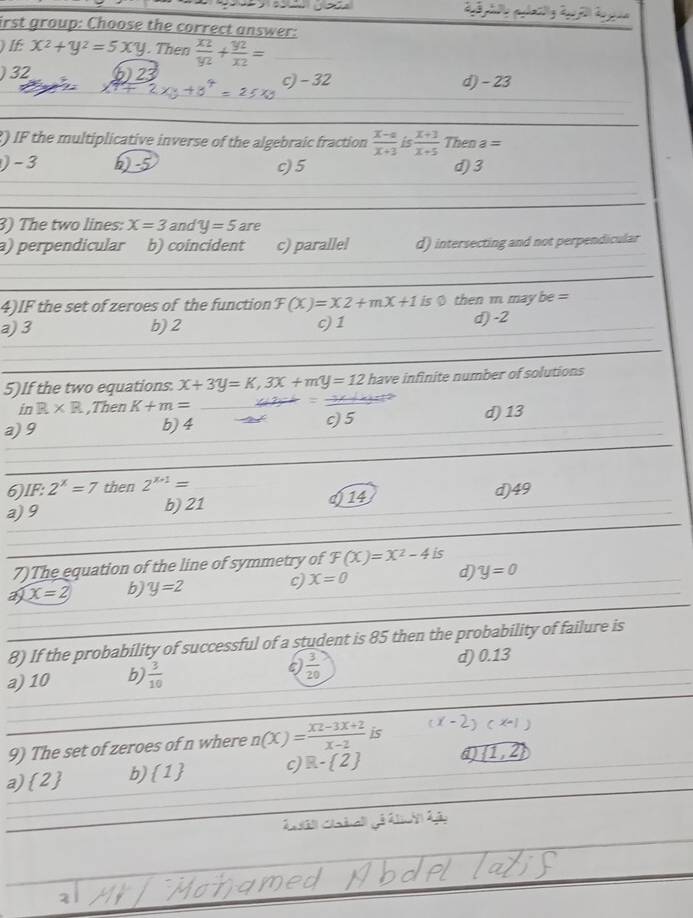 irst group: Choose the correct answer:
) If: x² + y² = 5 xy. Then x2/y2 + y2/x2 =
) 32 b) 23 c) - 32 d) - 23
x⁴ + 2xy + y⁴ = 25xy
2) IF the multiplicative inverse of the algebraic fraction x-a/x+3 is x+3/x+5 Then a =
) - 3 b) -5 c) 5 d) 3
3) The two lines: x = 3 and y = 5 are
a) perpendicular b) coincident c) parallel d) intersecting and not perpendicular
4)IF the set of zeroes of the function F (X) = X 2 + mX +1 is ∅ then m may be =
a) 3 b) 2 c) 1 d) -2
5)If the two equations: X + 3y = K , 3X + my = 12 have infinite number of solutions
in ℝ × ℝ ,Then K + m =
a) 9 b) 4 c) 5 d) 13
6)IF: 2ˣ = 7 then 2ˣ⁺¹ =
a) 9 b) 21 c) 14 d)49
7)The equation of the line of symmetry of F (X) = X² - 4 is
a) X = 2 b) y =2 c) X = 0 d) y = 0
8) If the probability of successful of a student is 85 then the probability of failure is
a) 10 b) 3/10 c) 3/20 d) 0.13
9) The set of zeroes of n where n(X) = X2-3X+2/X-2 is (x-2) (x-1)
a) {2} b) {1} c) ℝ - {2} d) {1, 2}
بقية الأسئلة في الصفحات القادمة
Mr/ Mohamed Abdel latif